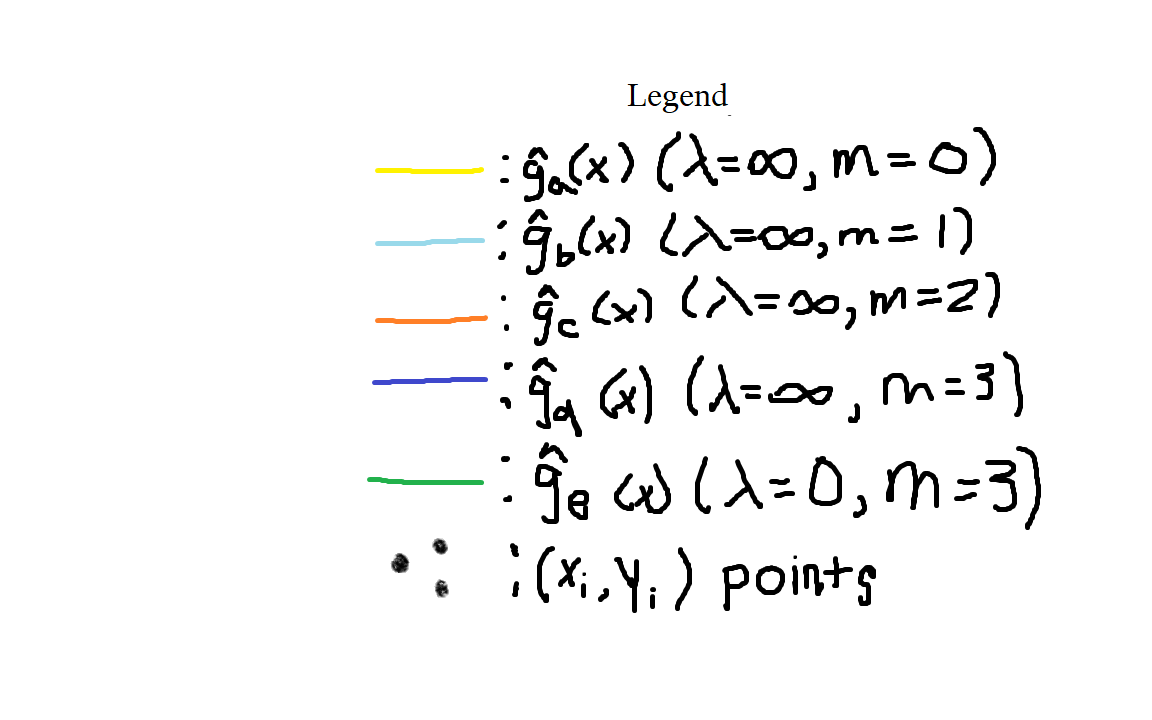 Legend
: ĝₐ(x) (λ=∞, m=0)
: ĝ_b(x) (λ=∞, m=1)
: ĝ_c(x) (λ=∞, m=2)
: ĝ_d(x) (λ=∞, m=3)
: ĝₑ(x) (λ=0, m=3)
: (xᵢ, yᵢ) points